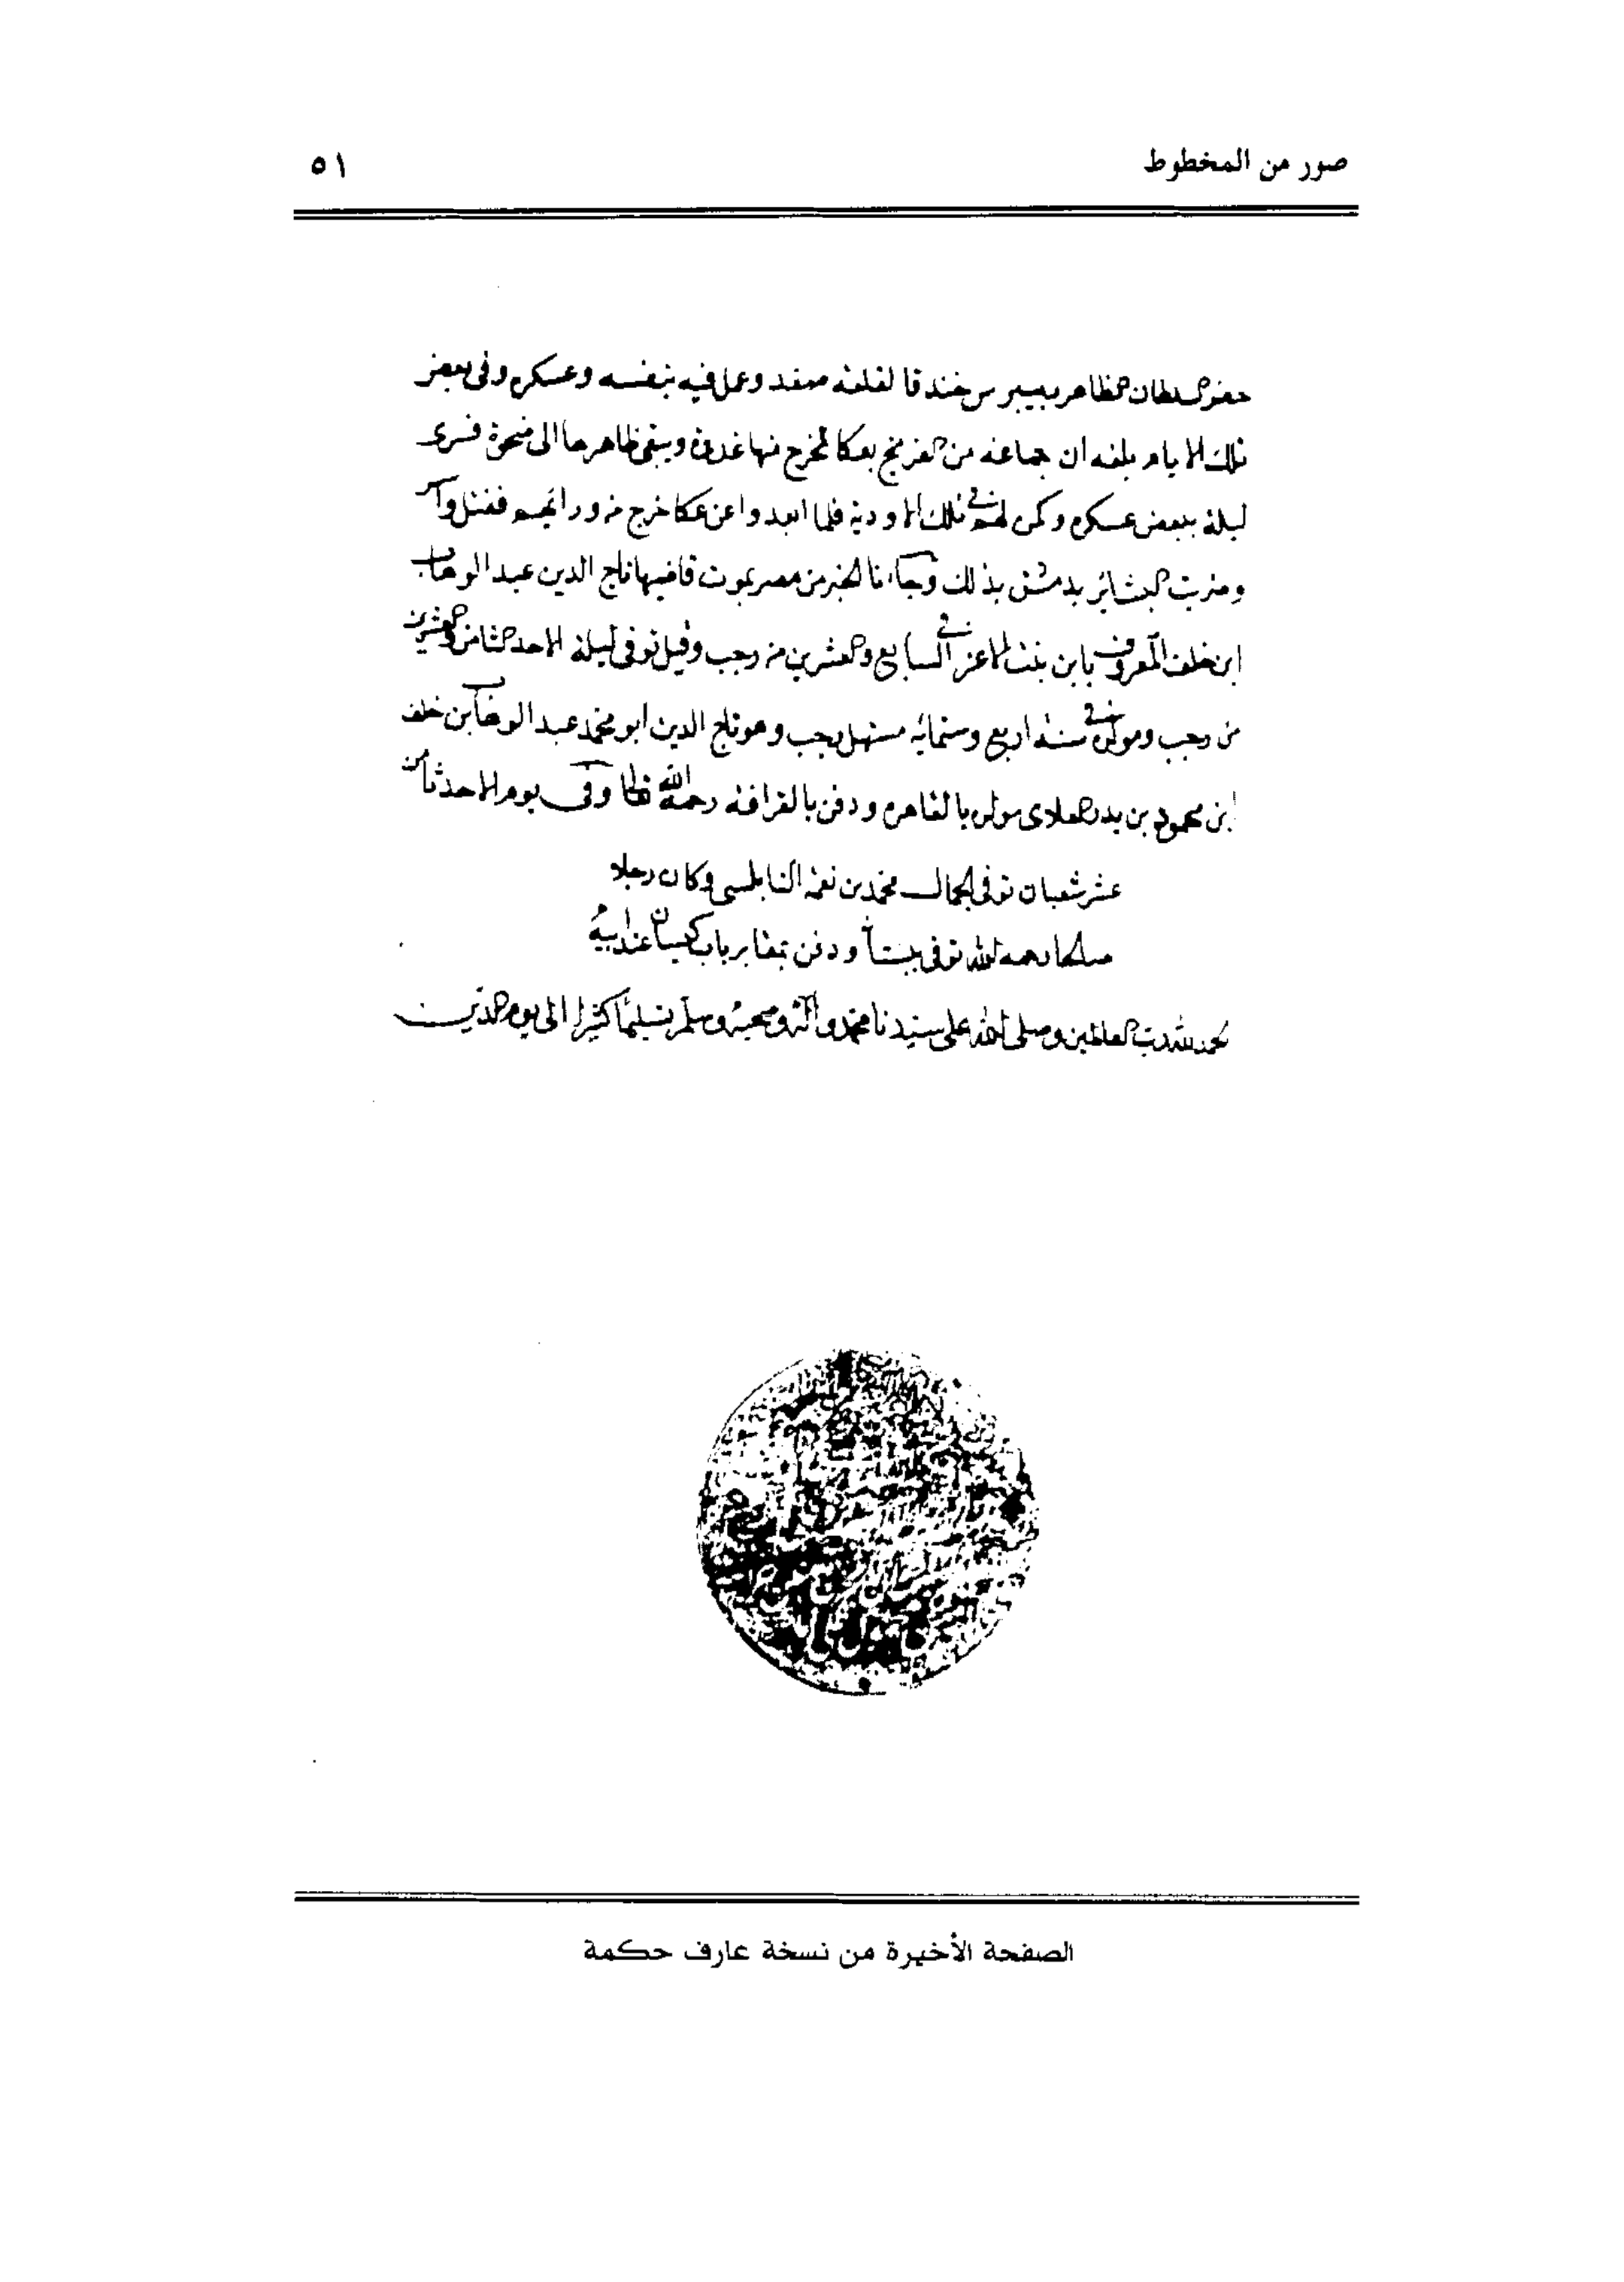 صور من المخطوط
٥١
حفر السلطان الظاهر بيبرس خندقا لقلعة صفد وعمل فيه بنفسه وعسكره وفي بعض
تلك الايام بلغه ان جماعة من الفرنج بعكا تخرج منها غدوة وتبقى ظاهرها الى ضحوة فسرى
ليلة ببعض عسكره وكمن لهم في تلك الاودية فلما ابعدوا عن عكا خرج من ورائهم فقتل وأسر
وضربت البشائر بدمشق بذلك وجاءنا الخبر من مصر بموت قاضيها تاج الدين عبد الوهاب
ابن خلف المعروف بابن بنت الاعز في السابع والعشرين من رجب وقيل توفى ليلة الاحد الثامن والعشرين
من رجب ومولده في سنة اربع وستمائة مستهل رجب وهو تاج الدين ابو محمد عبد الوهاب بن خلف
ابن محمود بن بدر العلادى مولده بالقاهرة ودفن بالقرافة رحمه الله تعالى وفي يوم الاحد ثامن
عشر شعبان توفي الجمال محمد بن نعمة النابلسي وكان رجلا
صالحا رحمه الله توفى ودفن بمقابر باب كيسان عند ابيه
الحمد لله رب العالمين وصلى الله على سيدنا محمد وآله وصحبه وسلم تسليما كثيرا الى يوم الدين
الصفحة الأخيرة من نسخة عارف حكمة